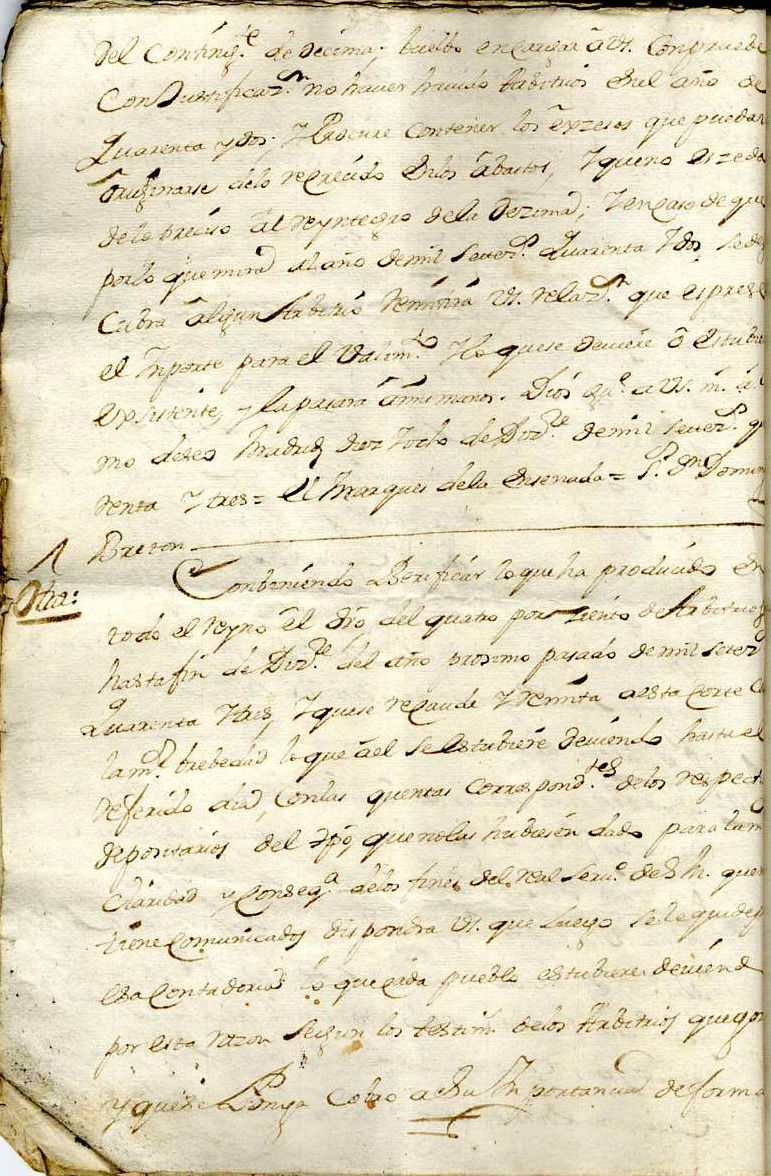 del Conting.te de decima; buelbo encargar a VS. Compruebe
Con Justificaz.n no haver havido Arbitrios en el año de
Quarenta y dos; Y Procure contener los exzesos que puedan
originarse de lo recrecido en los abastos, Y que no exzeda
de lo preciso al reyntegro de la Dezima; Y en caso de que
por lo que mira al año de mil setez.s Quarenta Y dos se des
Cubra algun Arbitrio remitirá VS. relaz.n que exprese
el Ynporte para el Valim.to Y lo que se deviere ô estubie
exsistente, y la pasará a mis manos. Dios gu.e a VS. m. a.s
mo deseo Madrid diez Y ocho de Diz.re de mil setez.s qua
renta Y tres = El Marques de la Ensenada = S.r D.n Doming
Breton
Otra: Combiniendo Berificar lo que ha producido en
todo el reyno el dro, del quatro por ziento de Arbitrios
hasta fin de Diz.re del año proximo pasado de mil setez.s
Quarenta Y tres, Y que se recaude Y remita a esta Corte Co
la m.r brebedad lo que de el se estubiere deviendo hasta el
referido dia, con las quentas correspond.tes de los respecti
depositarios del tpo, que no las hubiesen dado para la m
Claridad y conseq.a de los fines del real serv.o de S. M. que
tiene comunicados dispondra VS. que luego se le quide p
esa Contaduria lo que cada pueblo estubiere deviend
por esta razon segun los testim.s de los Arbitrios que go
y que se Ponga Cobro a su Ynportancia de forma